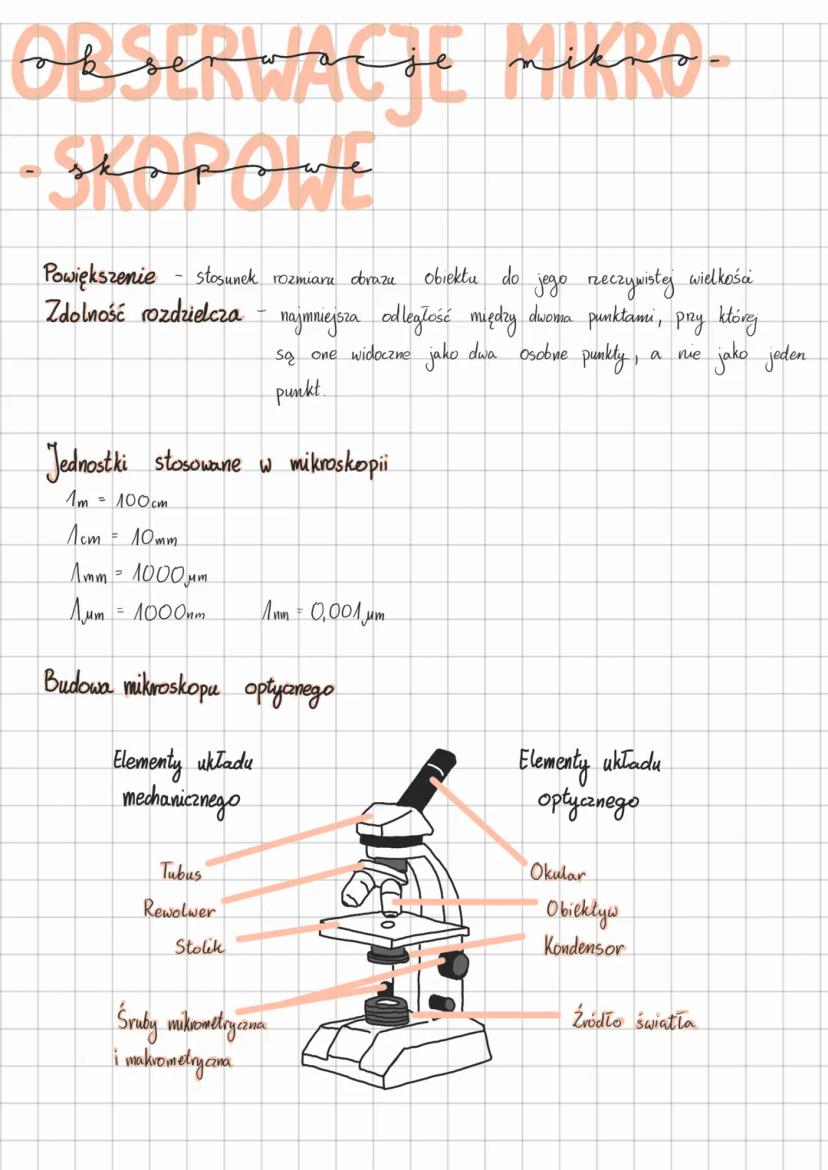 OBSERWACJE MIKRO-
obserwacje mikro-
-SKOPOWE
-skopowe
Powiększenie - stosunek rozmiaru obrazu obiektu do jego rzeczywistej wielkości
Zdolność rozdzielcza - najmniejsza odległość między dwoma punktami, przy której
są one widoczne jako dwa osobne punkty, a nie jako jeden
punkt.
Jednostki stosowane w mikroskopii
1m = 100cm
1cm = 10mm
1mm = 1000µm
1µm = 1000nm 1nm = 0,001µm
Budowa mikroskopu optycznego
Elementy układu
mechanicznego
Elementy układu
optycznego
Tubus
Rewolwer
Stolik
Śruby mikrometryczna
i makrometryczna
Okular
Obiektyw
Kondensor
Źródło światła